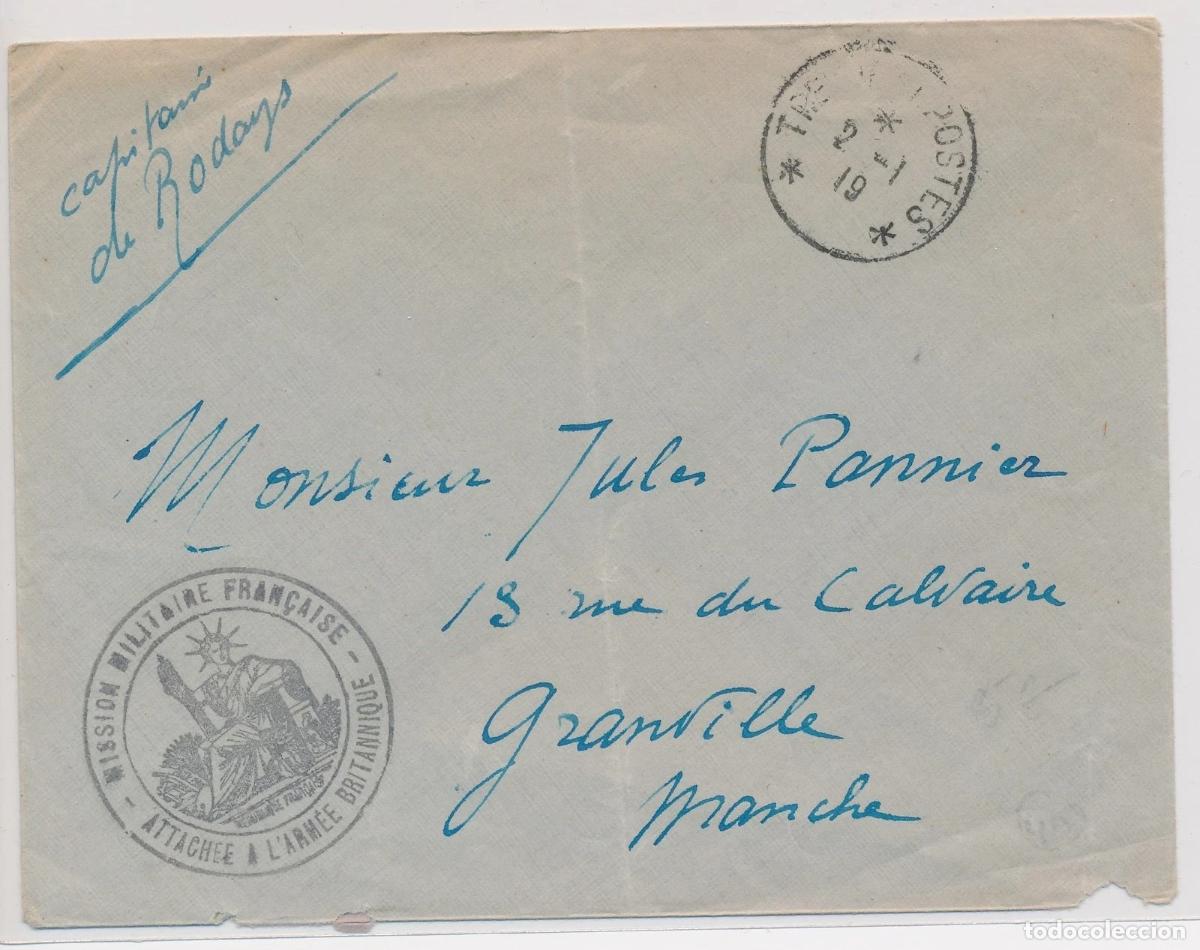 capitaine
de Rodays
POSTES
2
19
Monsieur Jules Pannier
18 rue du Calvaire
Granville
Manche
- MISSION MILITAIRE FRANÇAISE -
ATTACHÉE A L'ARMÉE BRITANNIQUE
todocoleccion